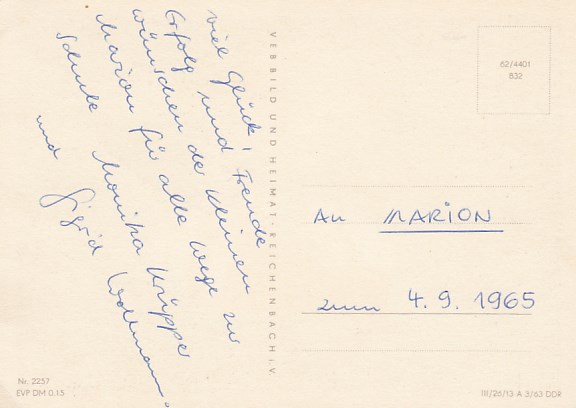 viel Glück, Freude
und
Erfolg
wünschen der kleinen
Marion für alle Wege zur
Schule Monika Krüppe
und Sigrid Wollmann
VEB BILD UND HEIMAT · REICHENBACH i. V.
62/4401
832
An MARION
zum 4. 9. 1965
Nr. 2257
EVP DM 0.15
III/26/13 A 3/63 DDR